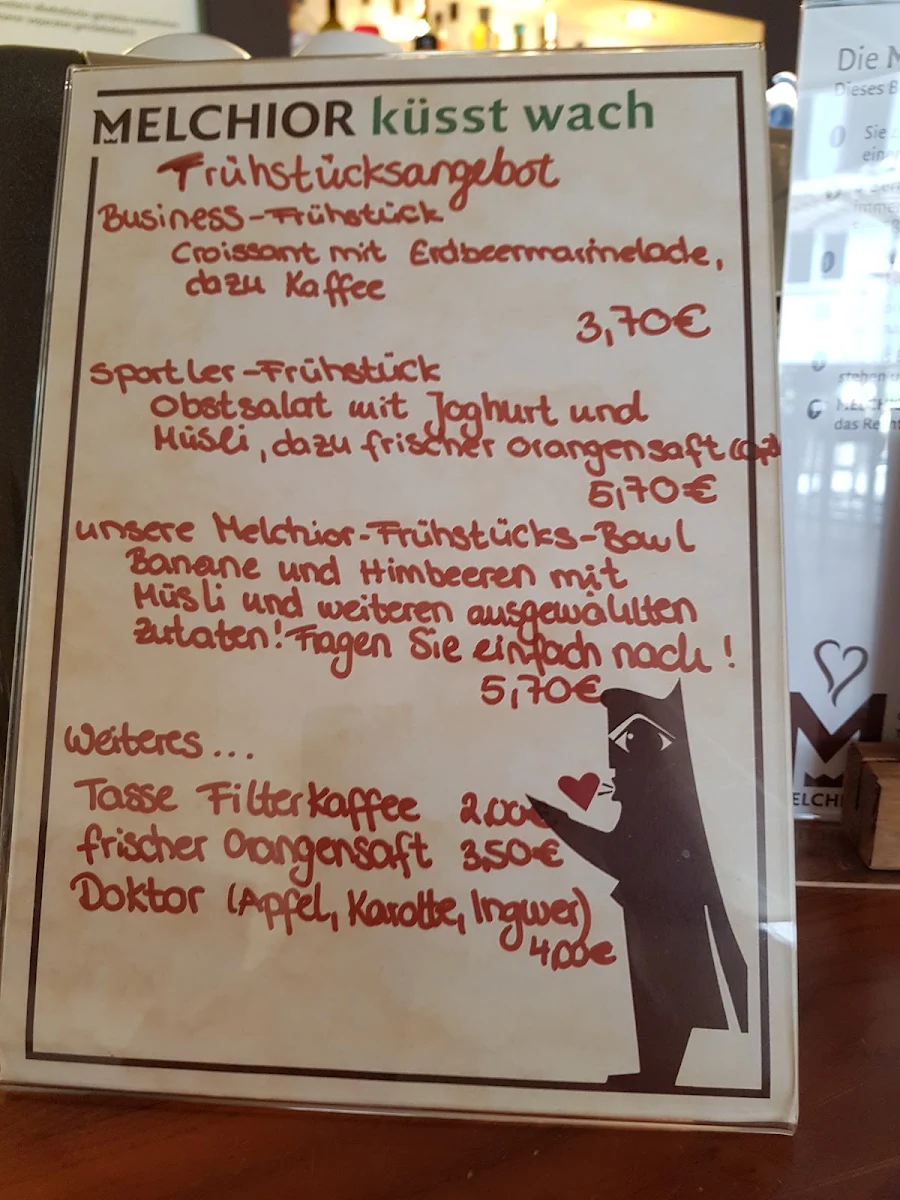 MELCHIOR küsst wach
Frühstücksangebot
Business-Frühstück
Croissant mit Erdbeermarmelade,
dazu Kaffee
3,70€
Sportler-Frühstück
Obstsalat mit Joghurt und
Müsli, dazu frischer Orangensaft
5,70€
unsere Melchior-Frühstücks-Bowl
Banane und Himbeeren mit
Müsli und weiteren ausgewählten
Zutaten! Fragen Sie einfach nach!
5,70€
Weiteres...
Tasse Filterkaffee 2,00€
frischer Orangensaft 3,50€
Doktor (Apfel, Karotte, Ingwer)
4,00€
Die
Dieses
Sie
das